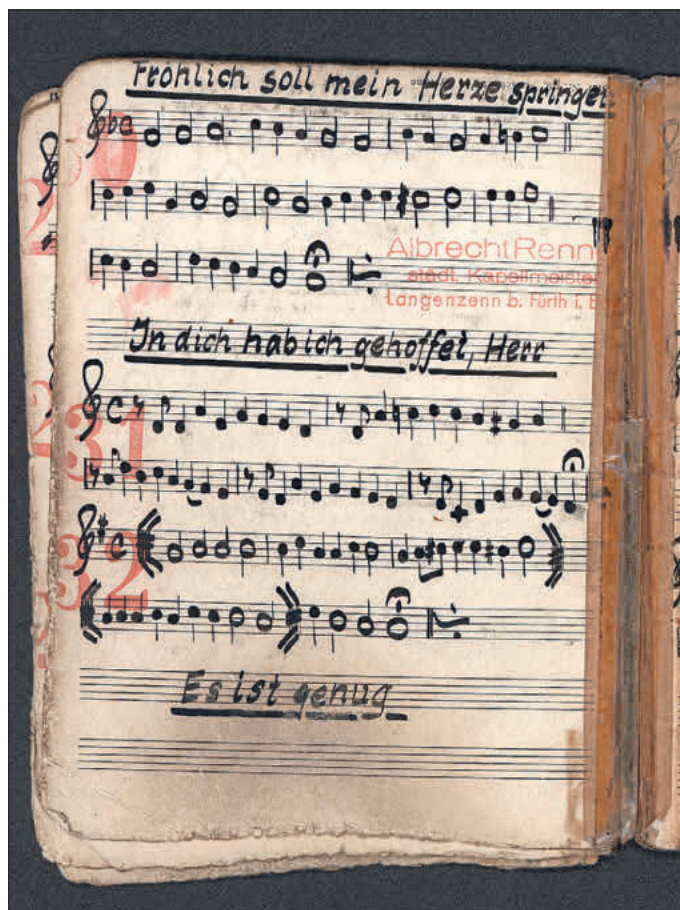 Fröhlich soll mein Herze springen
30
Albrecht Renn
städt. Kapellmeister
Langenzenn b. Fürth i. B
In dich hab ich gehoffet, Herr
31
32
Es ist genug